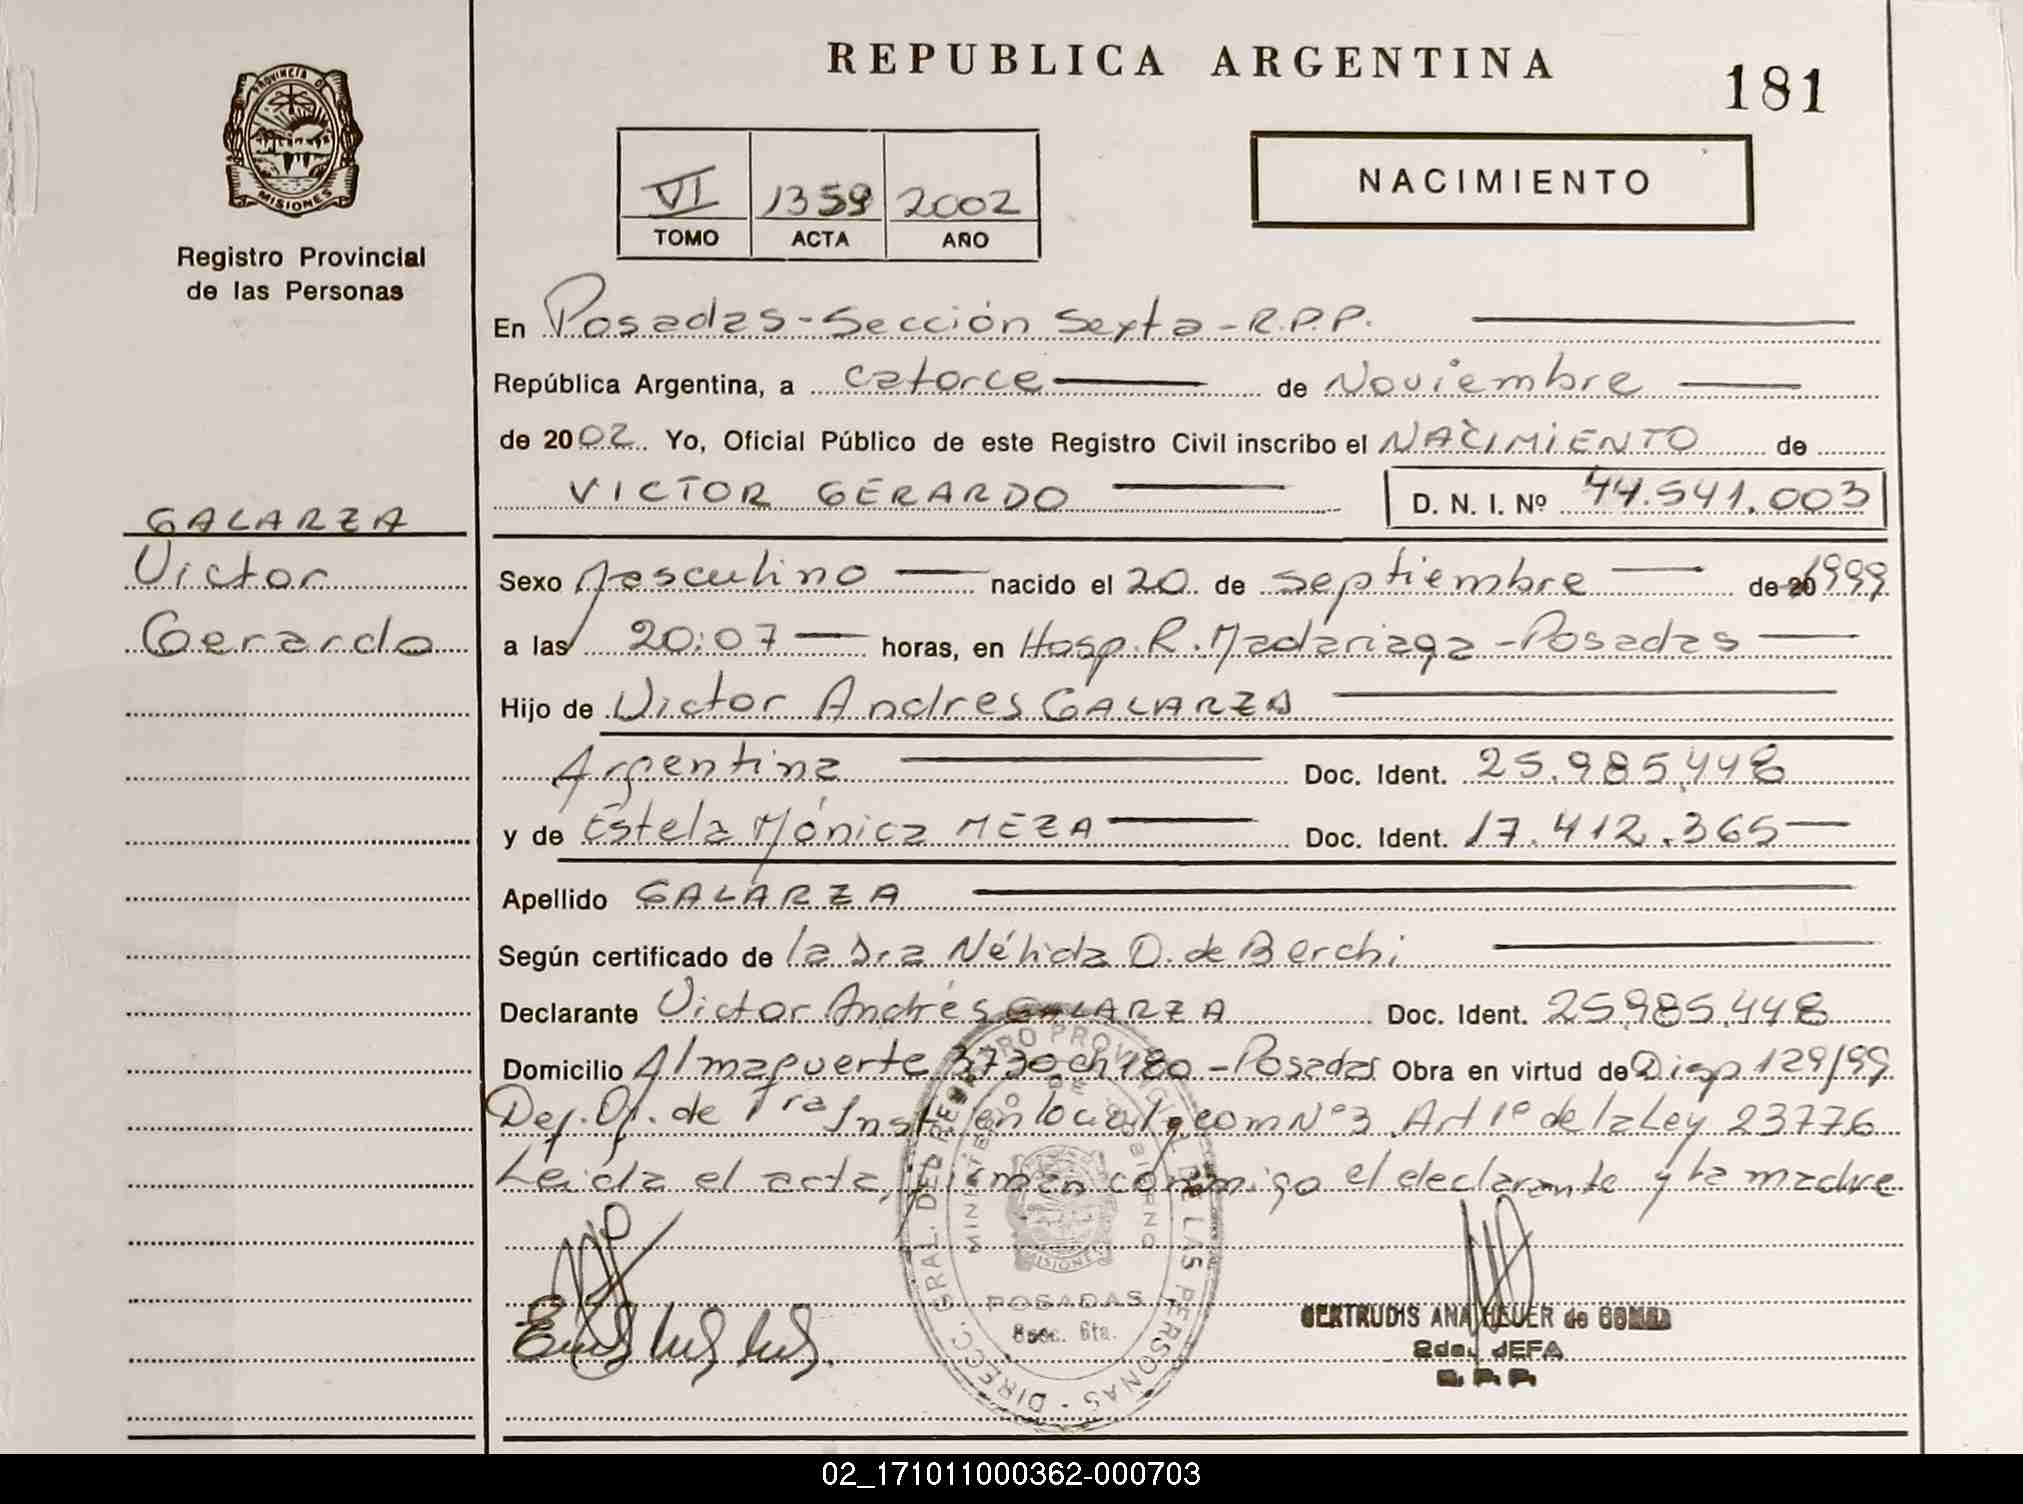 REPUBLICA ARGENTINA
181
PROVINCIA DE
MISIONES
Registro Provincial
de las Personas
VI 1359 2002
TOMO ACTA AÑO
NACIMIENTO
En Posadas - Sección Sexta - R.P.P.
República Argentina, a catorce de Noviembre
de 2002 Yo, Oficial Público de este Registro Civil inscribo el NACIMIENTO de
VICTOR GERARDO D. N. I. Nº 44.541.003
GALARZA
Victor
Gerardo
Sexo Masculino nacido el 20 de septiembre de 20 1999
a las 20:07 horas, en Hosp. R. Madariaga - Posadas
Hijo de Victor Andres GALARZA
Argentina Doc. Ident. 25.985.448
y de Estela Mónica MEZA Doc. Ident. 17.412.365
Apellido GALARZA
Según certificado de la Dra Nélida O. de Berchi
Declarante Victor Andrés GALARZA Doc. Ident. 25.985.448
Domicilio Almafuerte 3730 ch 180 - Posadas Obra en virtud de Disp 129/99
Def. Of. de 1ra Inst en lo y com Nº 3 Art 1º de la Ley 23776
Leida el acta, firman conmigo el declarante y la madre
DIRECC. GRAL. DEL REGISTRO PROVINCIAL DE LAS PERSONAS
MINISTERIO DE GOBIERNO
MISIONES
POSADAS
Secc. 6ta.
GERTRUDIS ANA HEUER de
2da. JEFA
R. P. P.
02_171011000362-000703